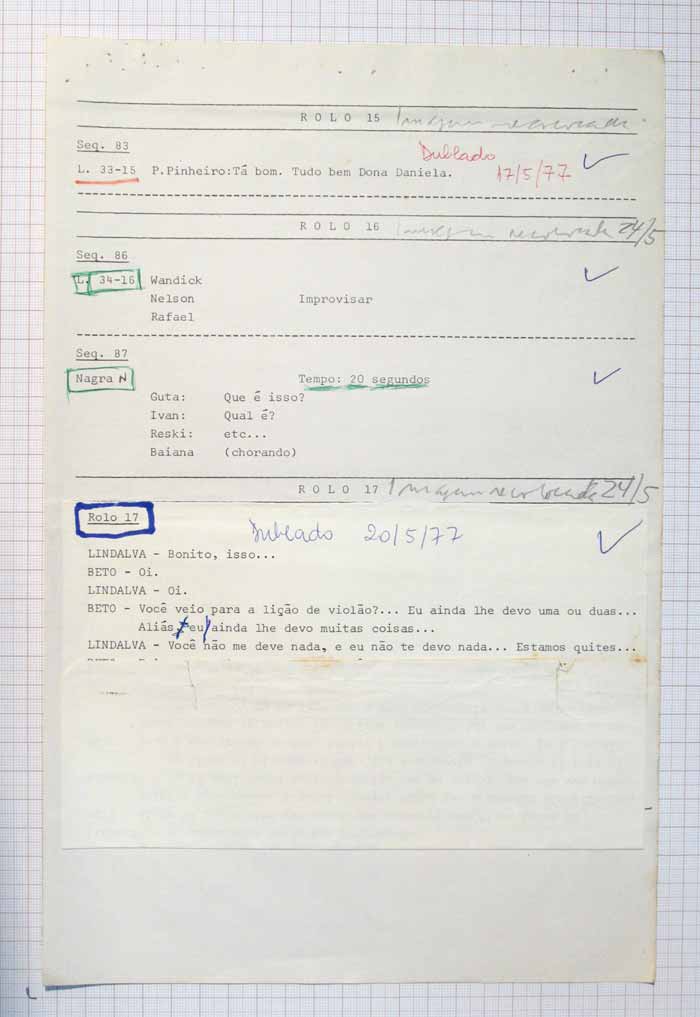 ROLO 15 Imagem recolocada
Seq. 83
Dublado
L. 33-15 P.Pinheiro:Tá bom. Tudo bem Dona Daniela. 17/5/77
ROLO 16 Imagem recolocada 24/5
Seq. 86
L. 34-16 Wandick
Nelson Improvisar
Rafael
Seq. 87
Nagra N Tempo: 20 segundos
Guta: Que é isso?
Ivan: Qual é?
Reski: etc...
Baiana (chorando)
ROLO 17 Imagem recolocada 24/5
Rolo 17
Dublado 20/5/77
LINDALVA - Bonito, isso...
BETO - Oi.
LINDALVA - Oi.
BETO - Você veio para a lição de violão?... Eu ainda lhe devo uma ou duas...
Aliás, eu ainda lhe devo muitas coisas...
LINDALVA - Você não me deve nada, e eu não te devo nada... Estamos quites...